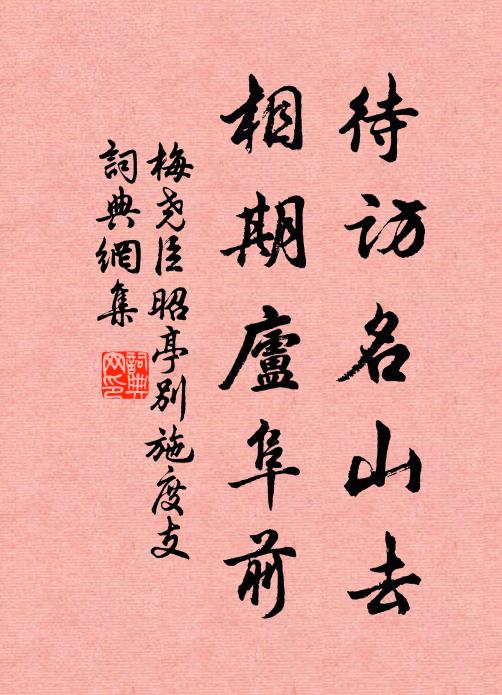 待访名山去
相期廬阜前
梅尭臣昭亭别施度支
詞典網集
詞典
网印